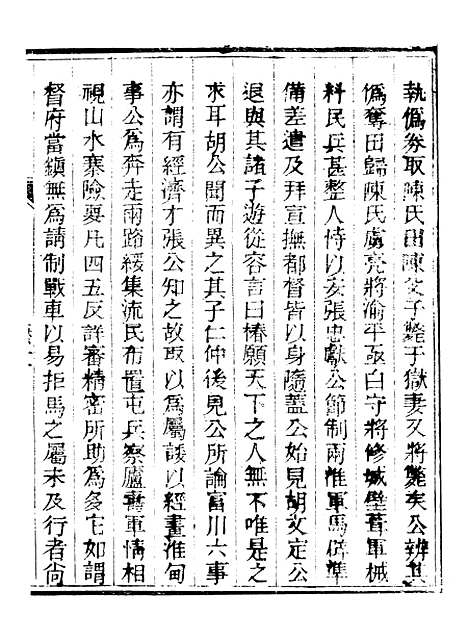 執僞券取陳氏田陳父子斃于獄妻又將斃矣公辨其
僞奪田歸陳氏虜亮將渝平亟白守將修城壁葺軍械
料民兵甚整人恃以安張忠獻公節制兩淮軍馬俾準
備差遣及拜宣撫都督皆以身隨蓋公始見胡文定公
退與其諸子遊從容言曰椿願天下之人無不唯是之
求耳胡公聞而異之其子仁仲後見公所論富川六事
亦謂有經濟才張公知之故取以為屬諉以經畫淮甸
事公為奔走兩路緩集流民布置屯兵察廬壽軍情相
視山水寨險要凡四五反詳審精密所助為多它如謂
督府當鎮無為請制戰車以易拒馬之屬未及行者尙